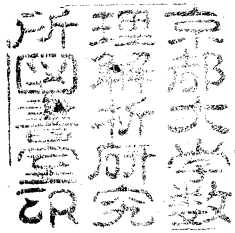 京都大学数
理解析研究
所図書室記